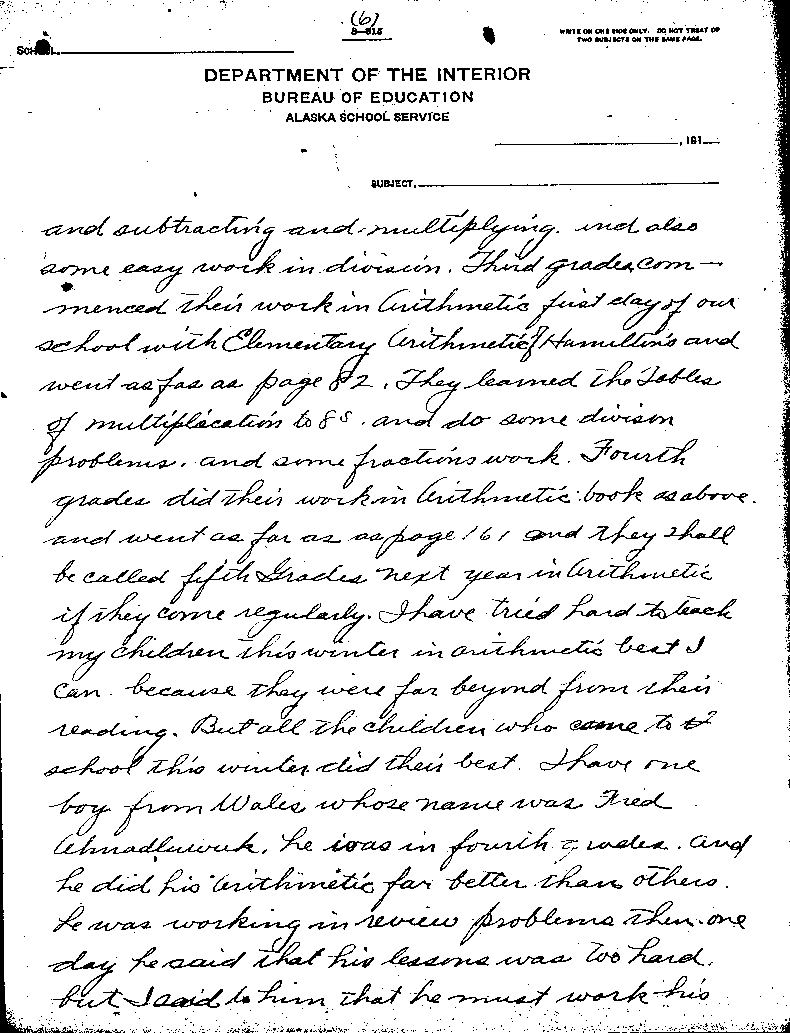 (6)
8-815
WRITE ON ONE SIDE ONLY. DO NOT TREAT OF
TWO SUBJECTS ON THE SAME PAGE.
SCHOOL,
DEPARTMENT OF THE INTERIOR
BUREAU OF EDUCATION
ALASKA SCHOOL SERVICE
, 191
SUBJECT,
and subtracting and multiplying. and also
some easy work in division. Third grades com-
menced their work in Arithmetic first day of our
school with Elementary Arithmetic of Hamilton's and
went as far as page 82. They learned the Tables
of multiplication to 8s. and do some divison
problems. and some fractions work. Fourth
grades did their work in Arithmetic book as above.
and went as far as as page 161 and they shall
be called fifth Grades next year in Arithmetic
if they come regularly. I have tried hard to teach
my children this winter in arithmetic best I
can. because they were far beyond from their
reading. But all the children who come to
school this winter did their best. I have one
boy from Wales whose name was Fred
he was in fourth grades. And
he did his Arithmetic far better than others.
he was working in review problems then one
day he said that his lessons was too hard.
but I said to him that he must work his